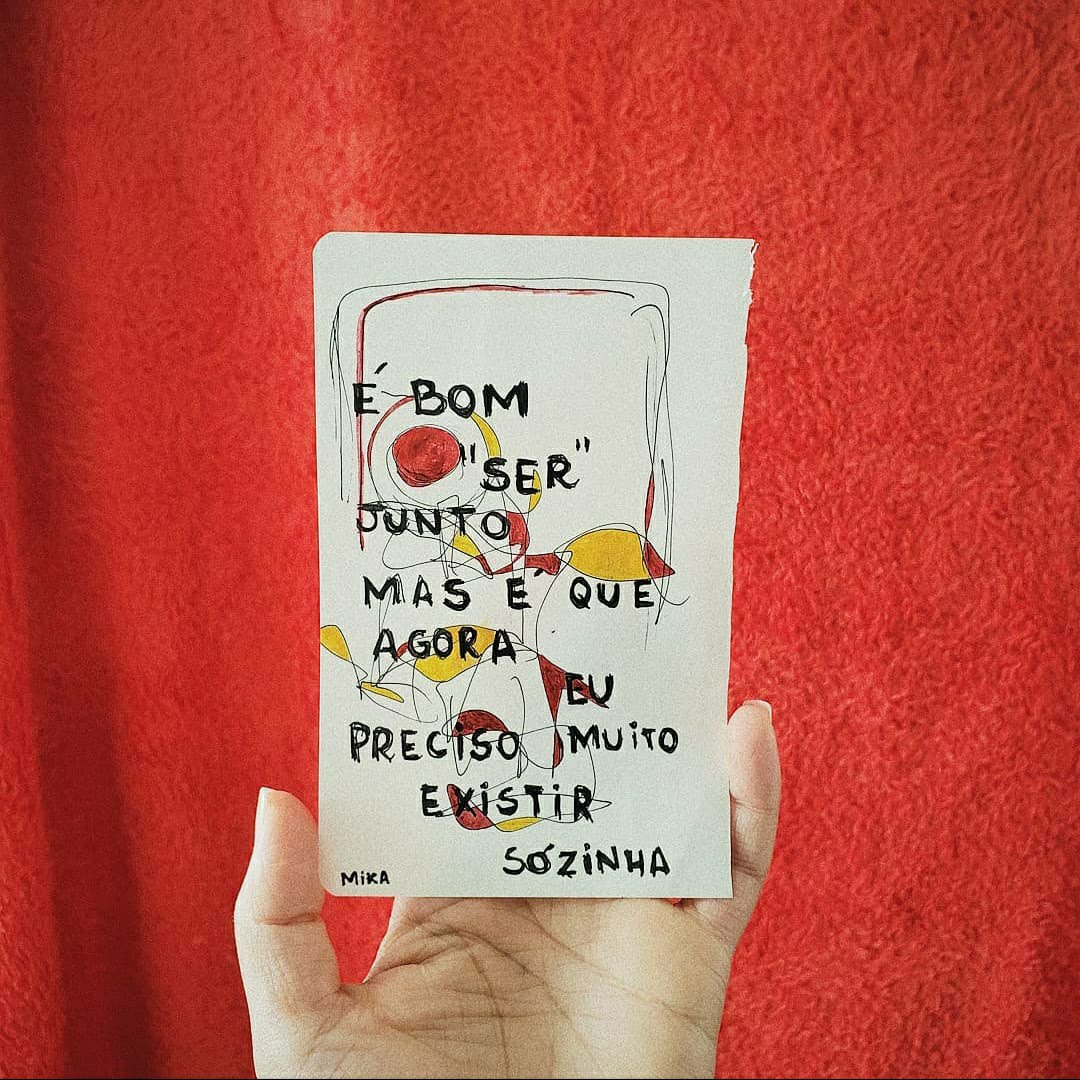 É BOM
"SER"
JUNTO
MAS É QUE
AGORA
EU
PRECiSO MUiTO
EXiSTiR
SÓZiNHA
MiKA